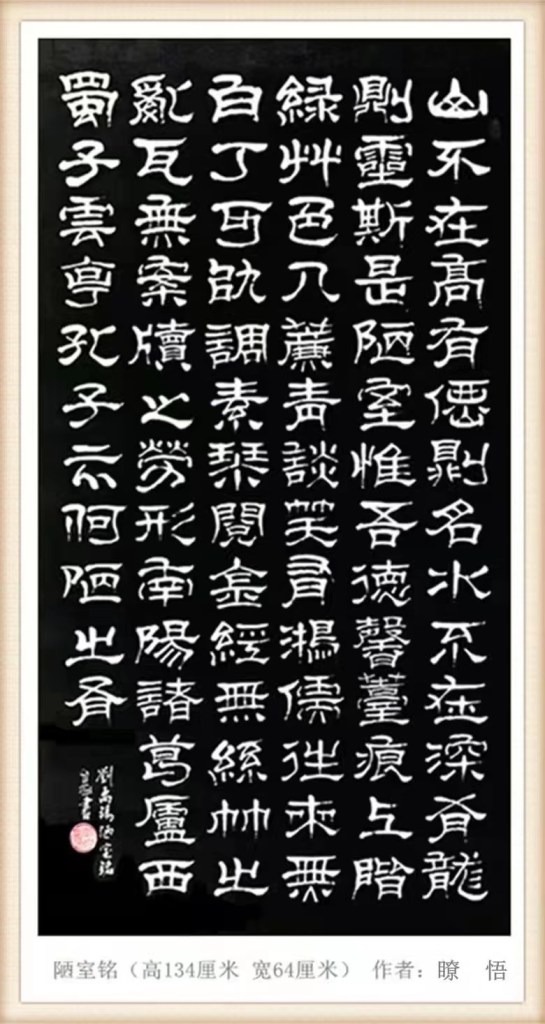 山不在高有德則名水不在深有龍
則靈斯是陋室惟吾德馨薹痕上階
綠艸色入簾青談笑有鴻儒往來無
白丁可以調素琴閱金經無絲竹之
亂耳無案牘之勞形南陽諸葛廬西
蜀子雲亭孔子云何陋之有
劉禹錫陋室銘
書
陋室铭（高134厘米 宽64厘米） 作者：瞭 悟